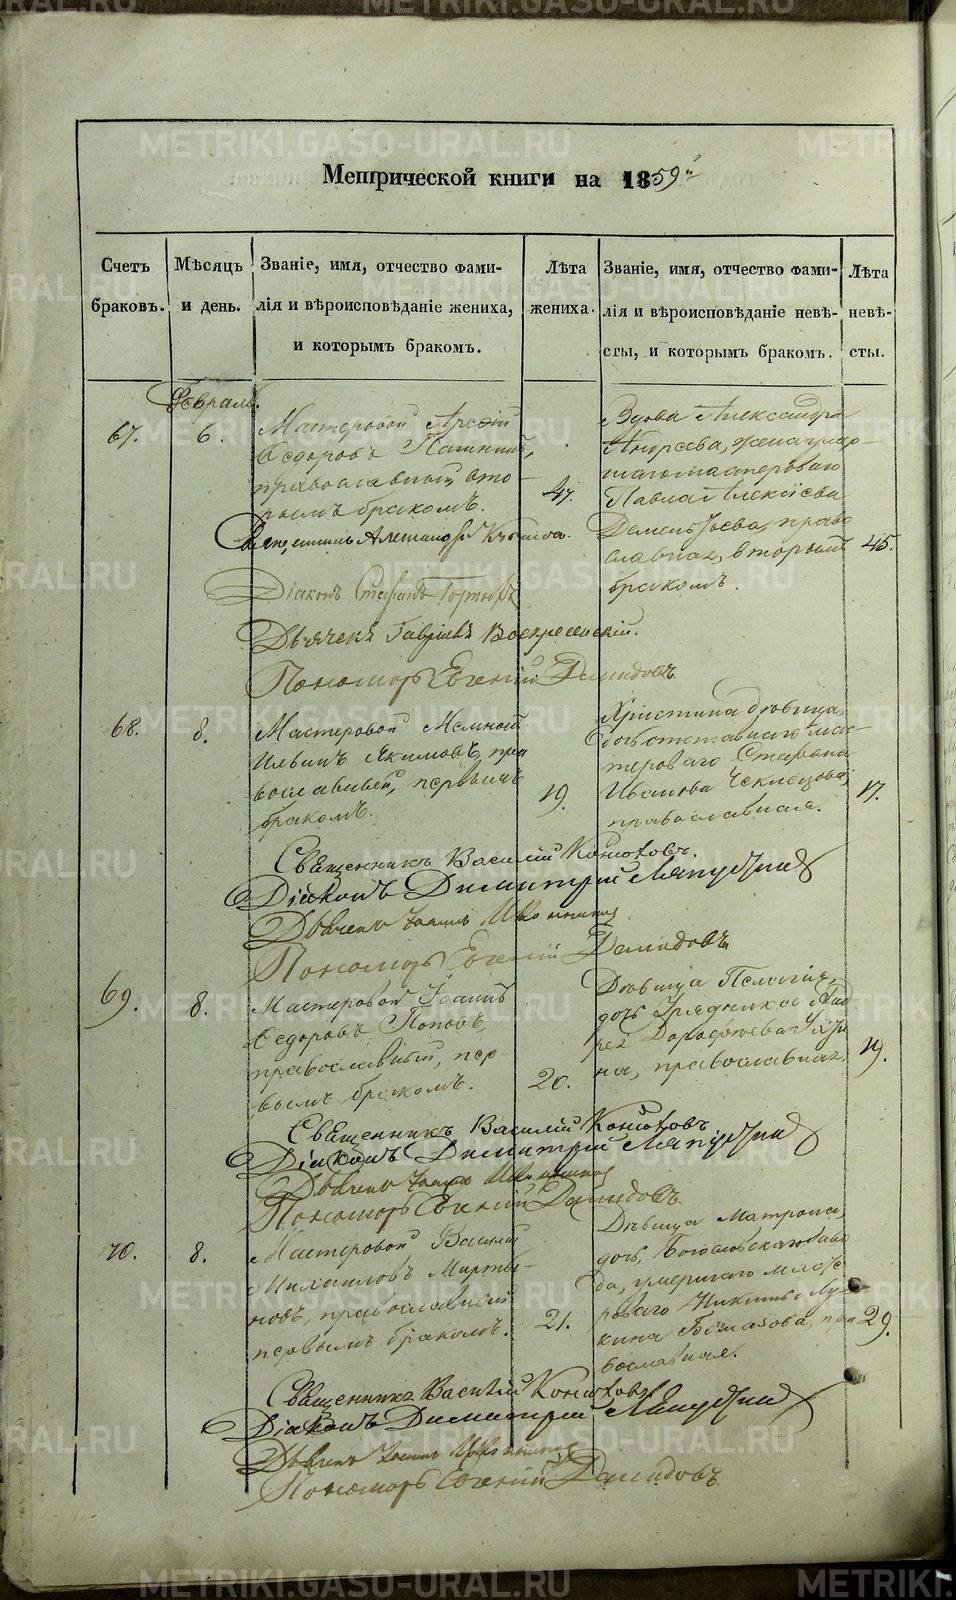 Метрической книги на 1859й
Счетъ браковъ.
Мѣсяцъ и день.
Званіе, имя, отчество фами-
лія и вѣроисповѣданіе жениха,
и которымъ бракомъ.
Лѣта жениха.
Званіе, имя, отчество фами-
лія и вѣроисповѣданіе невѣ-
сты, и которымъ бракомъ.
Лѣта невѣ-
сты.
Февраль.
67.
6.
Мастеровой
Ѳедоровъ
православный вто
рымъ бракомъ.
47.
Вдова Александра
Андреева, жена умер-
шаго мастероваго
Павла Алексіева
Дементьева, право
славная, вторымъ
бракомъ.
45.
Священникъ
Діаконъ Стефанъ
Дьячекъ Гавріилъ Воскресенскій.
Пономарь Евгеній Демидовъ
68.
8.
Мастеровой
Ильинъ Якимовъ, пра
вославный, первымъ
бракомъ.
19.
Христина дѣвица,
мас-
тероваго Стефана
Иванова
православная.
17.
Священникъ Василій Конюховъ.
Діаконъ Димитрій Ляпустинъ
Дьячекъ Іоаннъ
Пономарь Евгеній Демидовъ
69.
8.
Мастеровой Іоаннъ
Ѳедоровъ Поповъ,
православный, пер-
вымъ бракомъ.
20.
Дѣвица Пелагія,
дочь Урядника Анд
рея Дороѳеева
на, православная,
19.
Священникъ Василій Конюховъ
Діаконъ Димитрій Ляпустинъ
Дьячекъ Іоаннъ
Пономарь Евгеній Демидовъ.
70.
8.
Мастеровой, Василій
Михаиловъ Марты-
новъ, православный
первымъ бракомъ.
21.
Дѣвица Матрона,
дочь, Богословскаго заво
да, умершаго масте
роваго Никиты Лу-
кина пра
вославная.
29.
Священникъ Василій Конюховъ
Діаконъ Димитрій Ляпустинъ
Дьячекъ Іоаннъ
Пономарь Евгеній Демидовъ
METRIKI.GASO-URAL.RU